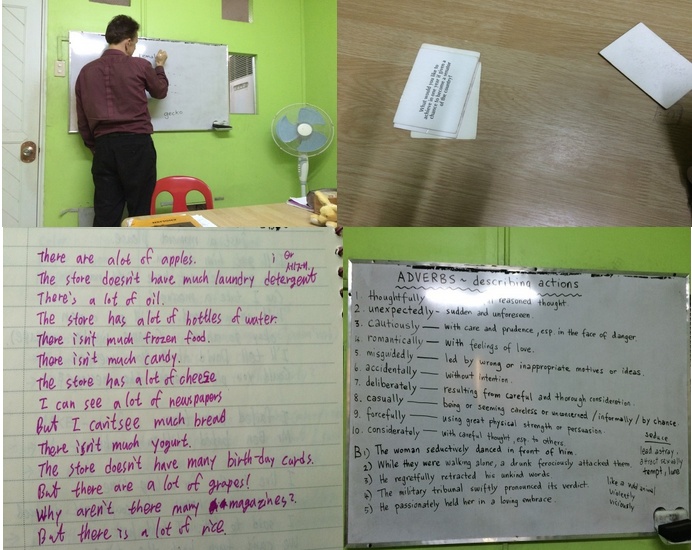 What would you like to
achieve in one year if given a
chance to become a senator
of the country?
There are alot of apples.
The store doesn't have much laundry detergent
There's a lot of oil.
The store has alot of bottles of water.
There isn't much frozen food.
There isn't much candy.
The store has a lot of cheese
I can see a lot of newspapers
But I can't see much bread
There isn't much yogurt.
The store doesn't have many birth-day cards.
But there are a lot of grapes!
Why aren't there many magazines?
But there is a lot of rice.
ADVERBS - describing actions
1. thoughtfully reasoned thought
2. unexpectedly - sudden and unforeseen.
3. cautiously — with care and prudence, esp. in the face of danger
4. romantically — with feelings of love.
5. misguidedly — led by wrong or inappropriate motives or ideas.
6. accidentally — without intention.
7. deliberately — resulting from careful and thorough consideration.
8. casually — being or seeming careless or unconcerned / informally / by chance
9. forcefully — using great physical strength or persuasion
10. considerately — with careful thought, esp. to others.
B. 1) The woman seductively danced in front of him.
2) While they were walking alone, a drunk ferociously attacked them.
3) He regretfully retracted his unkind words
4) The military tribunal swiftly pronounced its verdict.
5) He passionately held her in a loving embrace.
seduce
lead astray,
tempt, lure
like a wild animal
violently
viciously